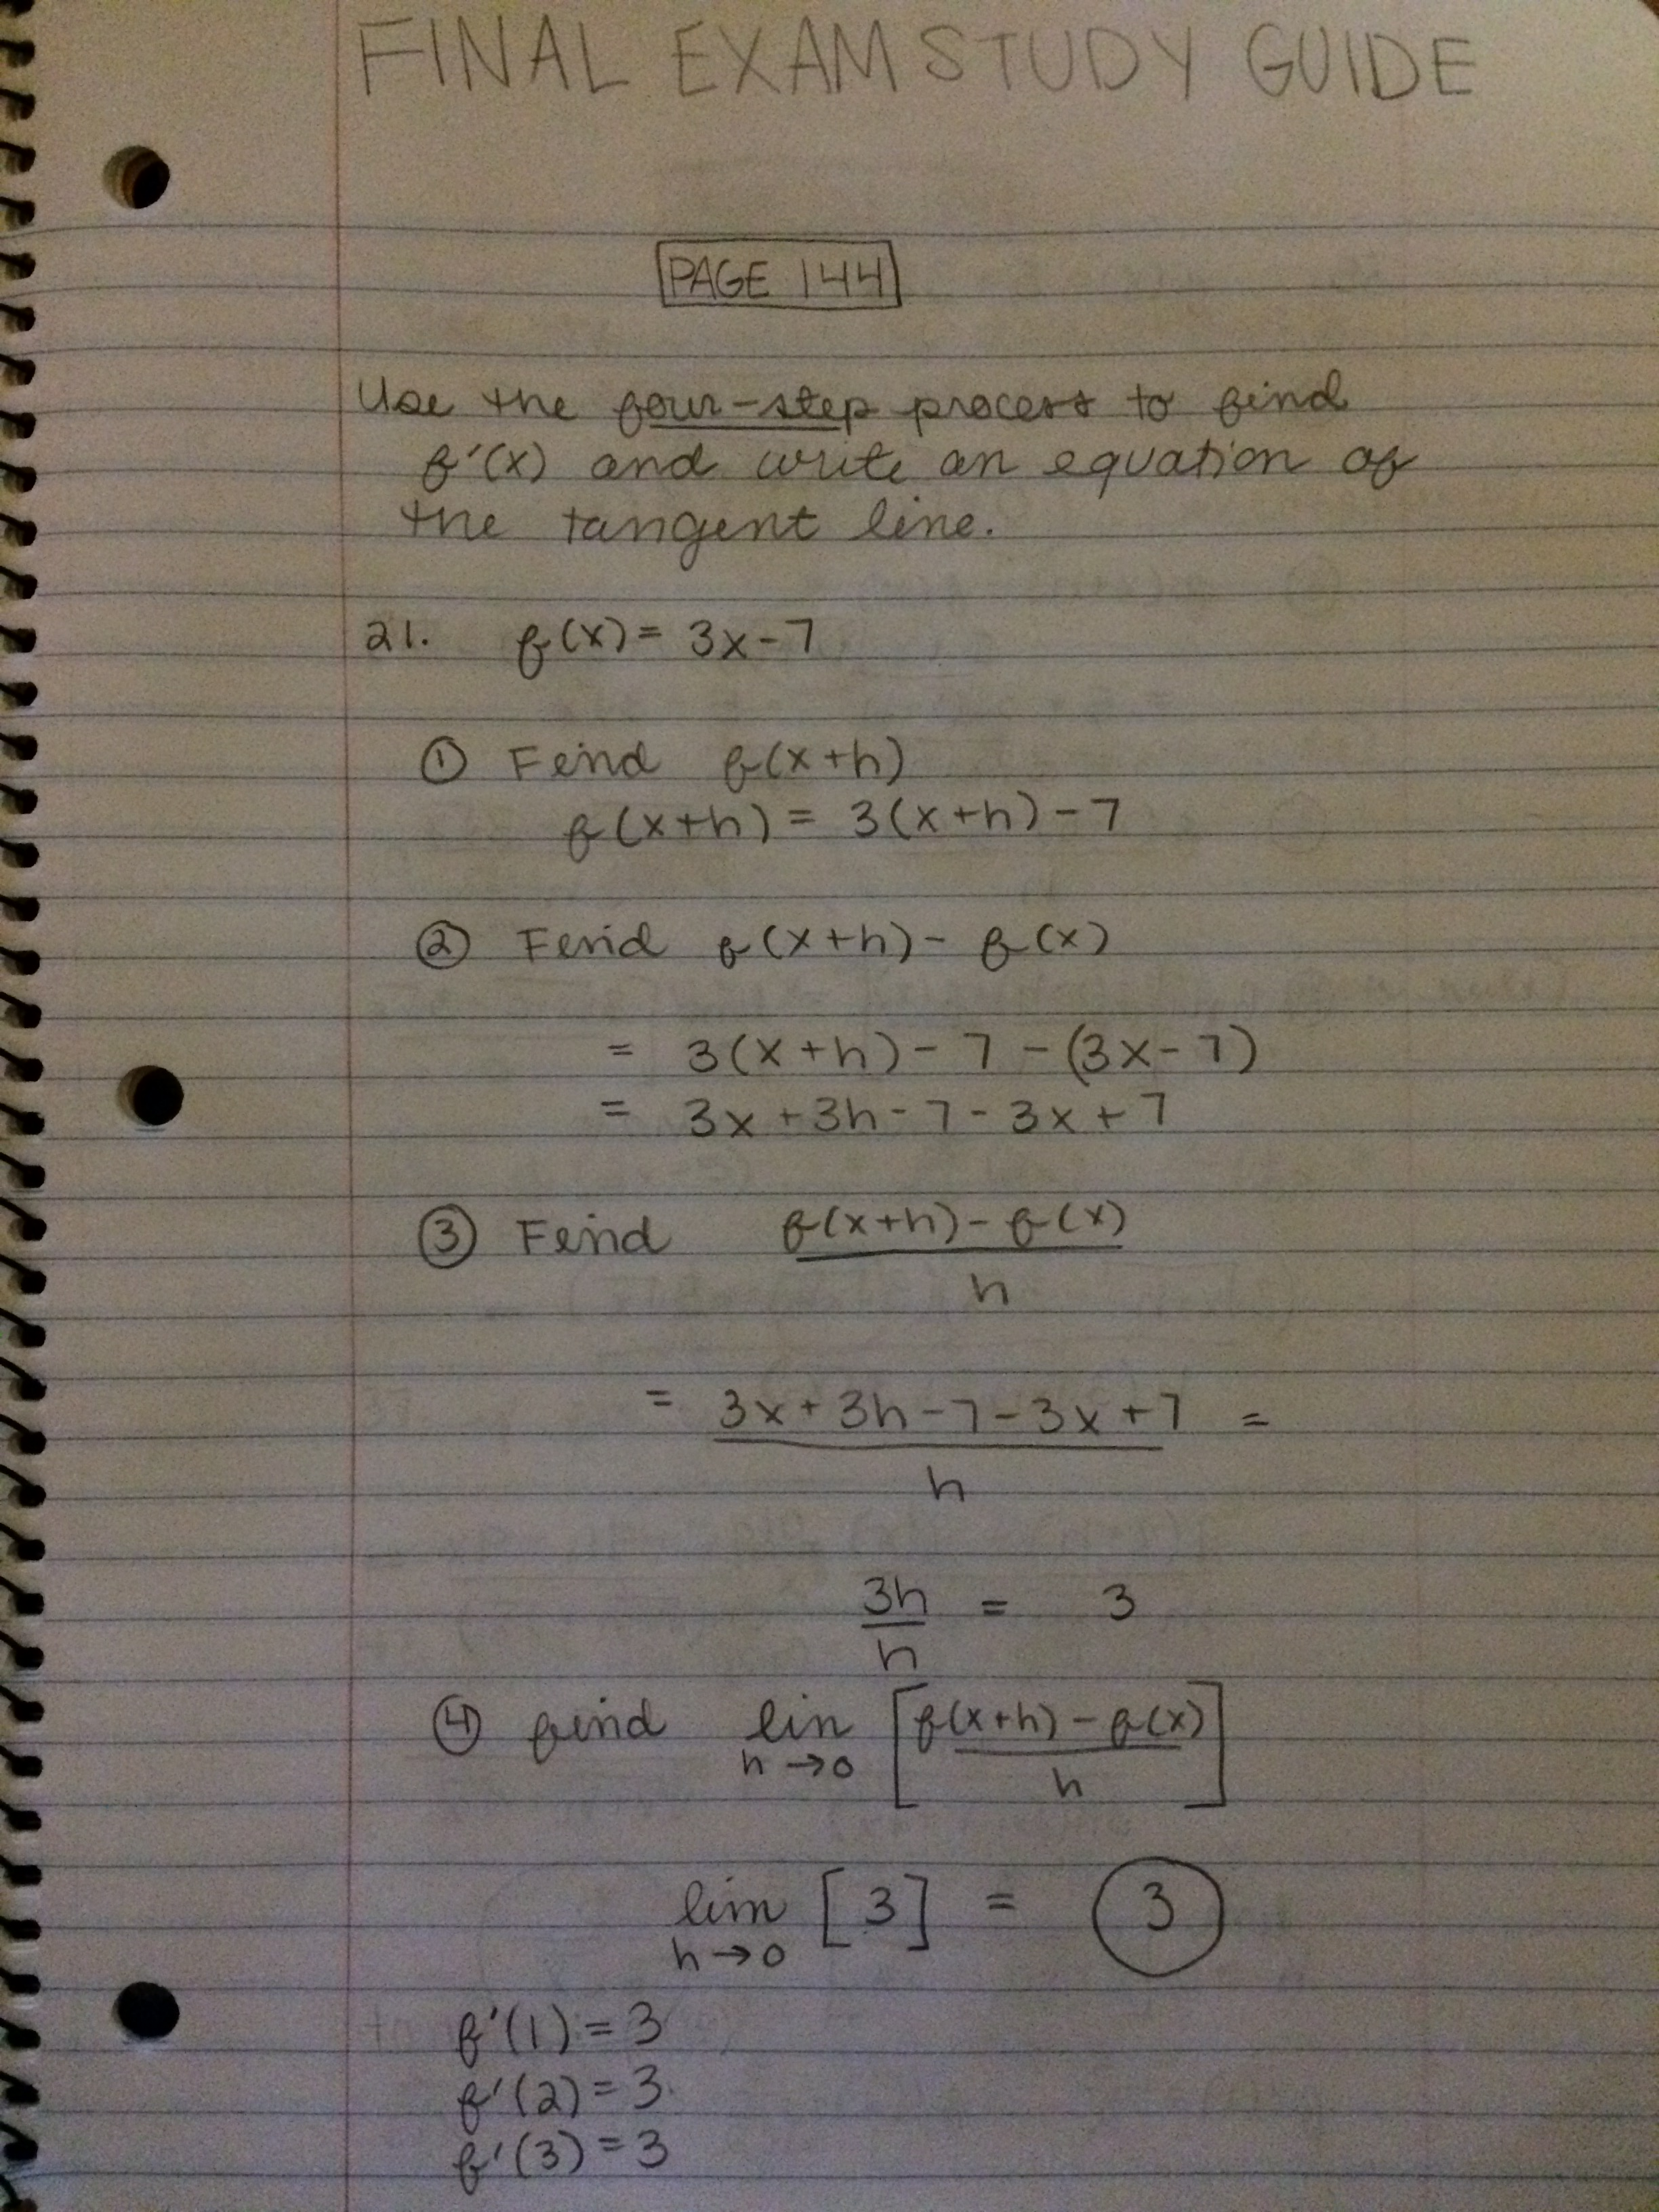 FINAL EXAM STUDY GUIDE
PAGE 144
Use the four-step process to find
f'(x) and write an equation of
the tangent line.
21. f(x) = 3x-7
① Find f(x+h)
f(x+h) = 3(x+h) - 7
② Find f(x+h) - f(x)
= 3(x+h) - 7 - (3x-7)
= 3x+3h-7-3x+7
③ Find f(x+h) - f(x)
h
= 3x+3h-7-3x+7 =
h
3h = 3
h
④ find lim [f(x+h) - f(x)]
h→0 h
lim [3] = 3
h→0
f'(1) = 3
f'(2) = 3
f'(3) = 3